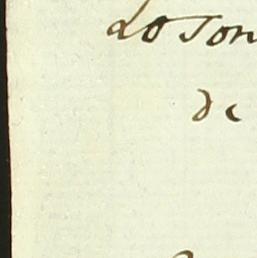 Lo son
de